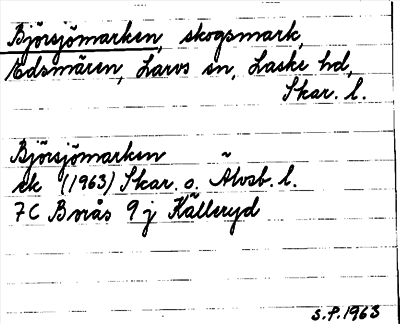 Björsjömarken, skogsmark,
Edsmären, Larvs sn, Laske hd,
Skar. l.
Björsjömarken ~
ek (1963) Skar. o. Älvsb. l.
7C Borås 9 j Källeryd
S.P. 1963